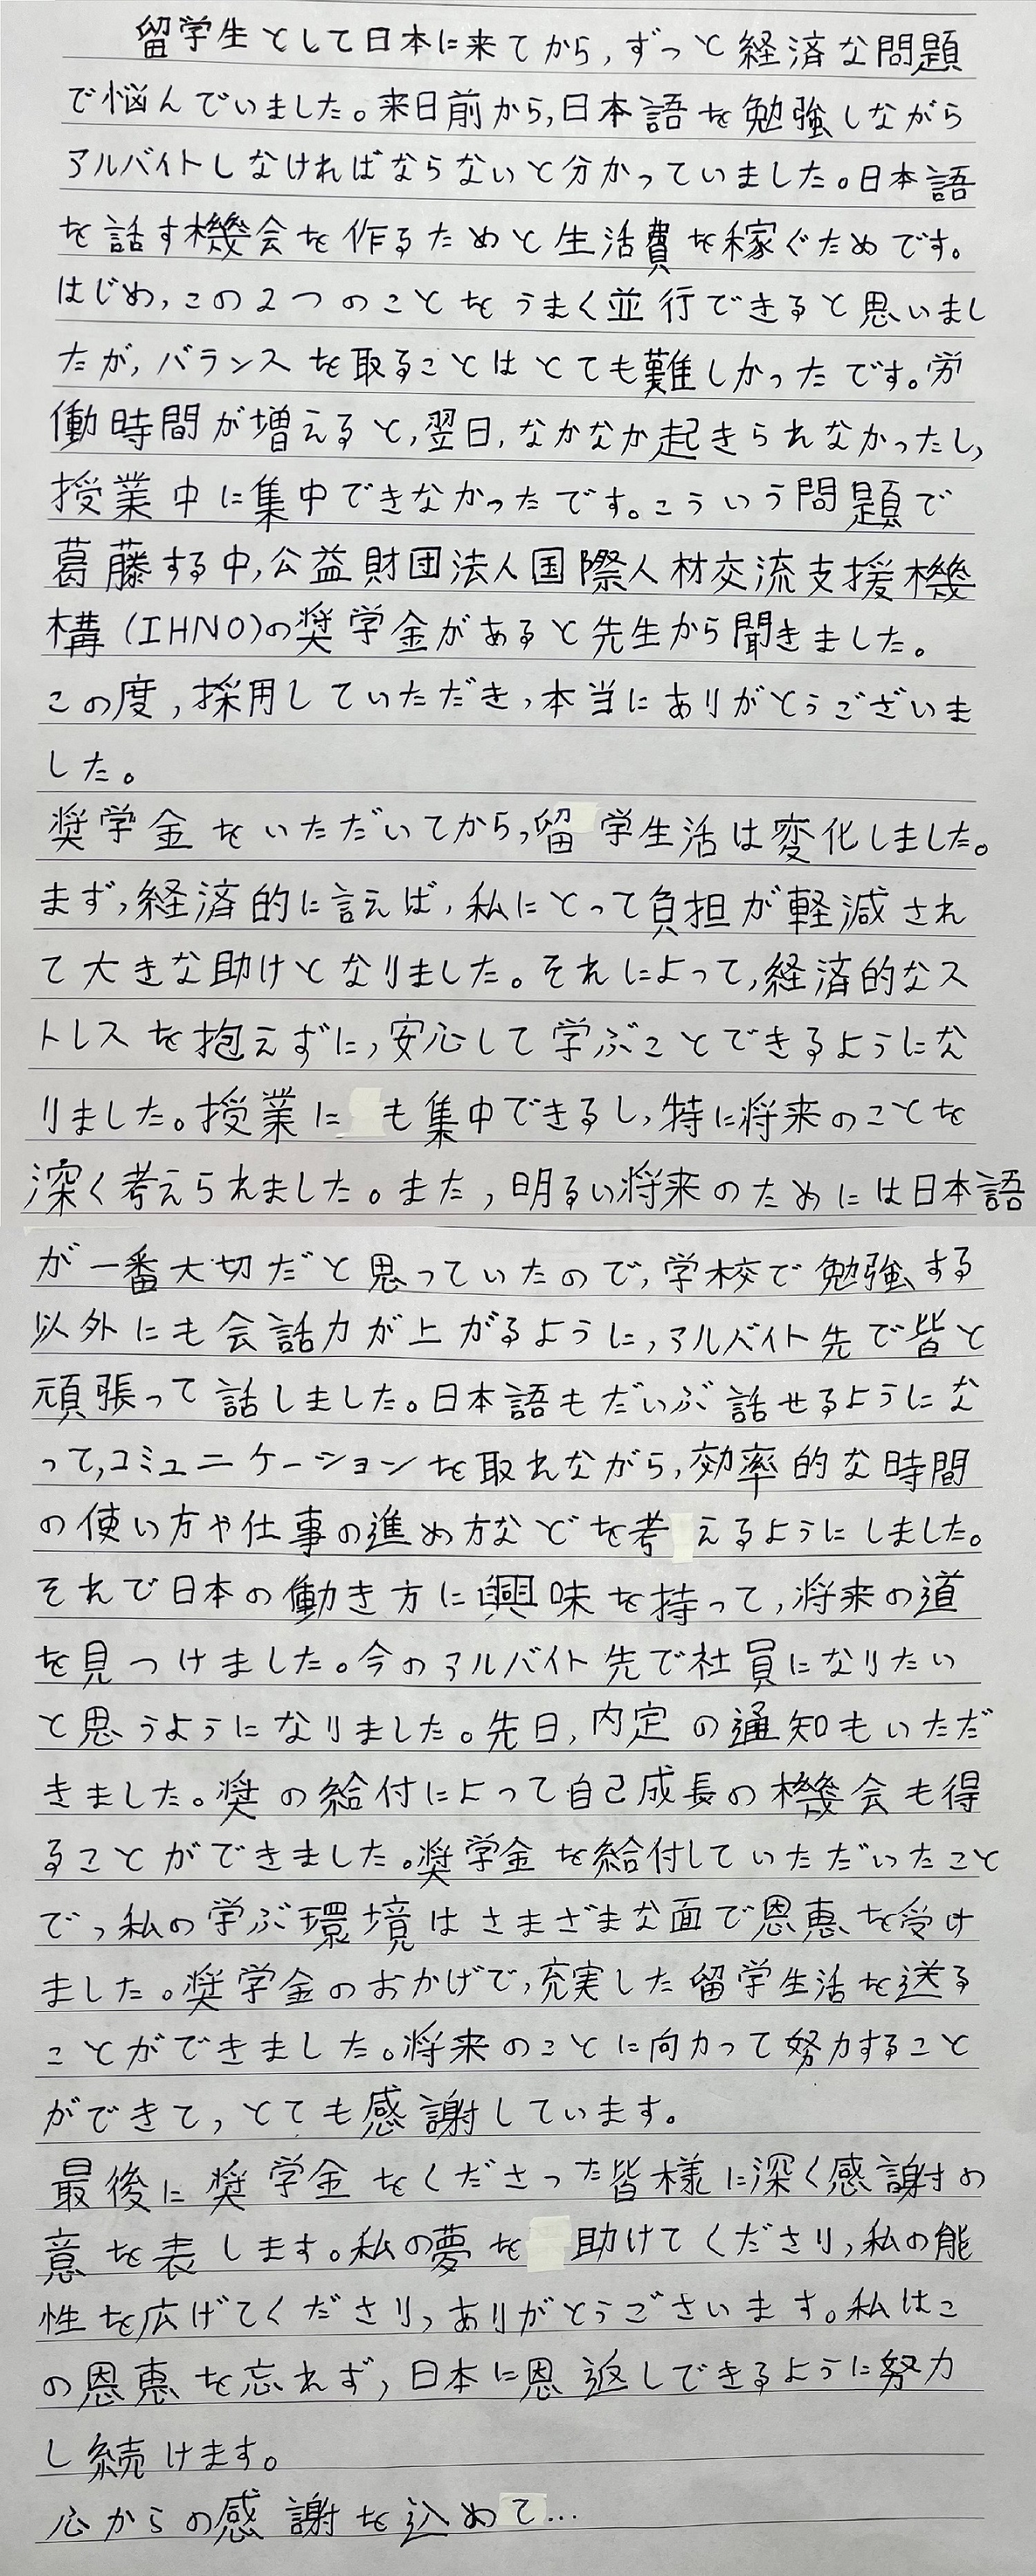 留学生として日本に来てから,ずっと経済な問題
で悩んでいました。来日前から,日本語を勉強しながら
アルバイトしなければならないと分かっていました。日本語
を話す機会を作るためと生活費を稼ぐためです。
はじめ,この2つのことをうまく並行できると思いまし
たが,バランスを取ることはとても難しかったです。労
働時間が増えると,翌日,なかなか起きられなかったし,
授業中に集中できなかったです。こういう問題で
葛藤する中,公益財団法人国際人材交流支援機
構(IHNO)の奨学金があると先生から聞きました。
この度,採用していただき,本当にありがとうございま
した。
奨学金をいただいてから,留学生活は変化しました。
まず,経済的に言えば,私にとって負担が軽減され
て大きな助けとなりました。それによって,経済的なス
トレスを抱えずに,安心して学ぶことできるようにな
りました。授業にも集中できるし,特に将来のことを
深く考えられました。また,明るい将来のためには日本語
が一番大切だと思っていたので,学校で勉強する
以外にも会話力が上がるように,アルバイト先で皆と
頑張って話しました。日本語もだいぶ話せるようにな
って,コミュニケーションを取れながら,効率的な時間
の使い方や仕事の進め方などを考えるようにしました。
それで日本の働き方に興味を持って,将来の道
を見つけました。今のアルバイト先で社員になりたい
と思うようになりました。先日,内定の通知もいただ
きました。奨の給付によって自己成長の機会も得
ることができました。奨学金を給付していただいたこと
でっ私の学ぶ環境はさまざまな面で恩恵を受け
ました。奨学金のおかげで,充実した留学生活を送る
ことができました。将来のことに向かって努力すること
ができて,とても感謝しています。
最後に奨学金をくださった皆様に深く感謝の
意を表します。私の夢を助けてくださり,私の能
性を広げてくださり,ありがとうごさいます。私はこ
の恩恵を忘れず,日本に恩返しできるように努力
し続けます。
心からの感謝を込めて...